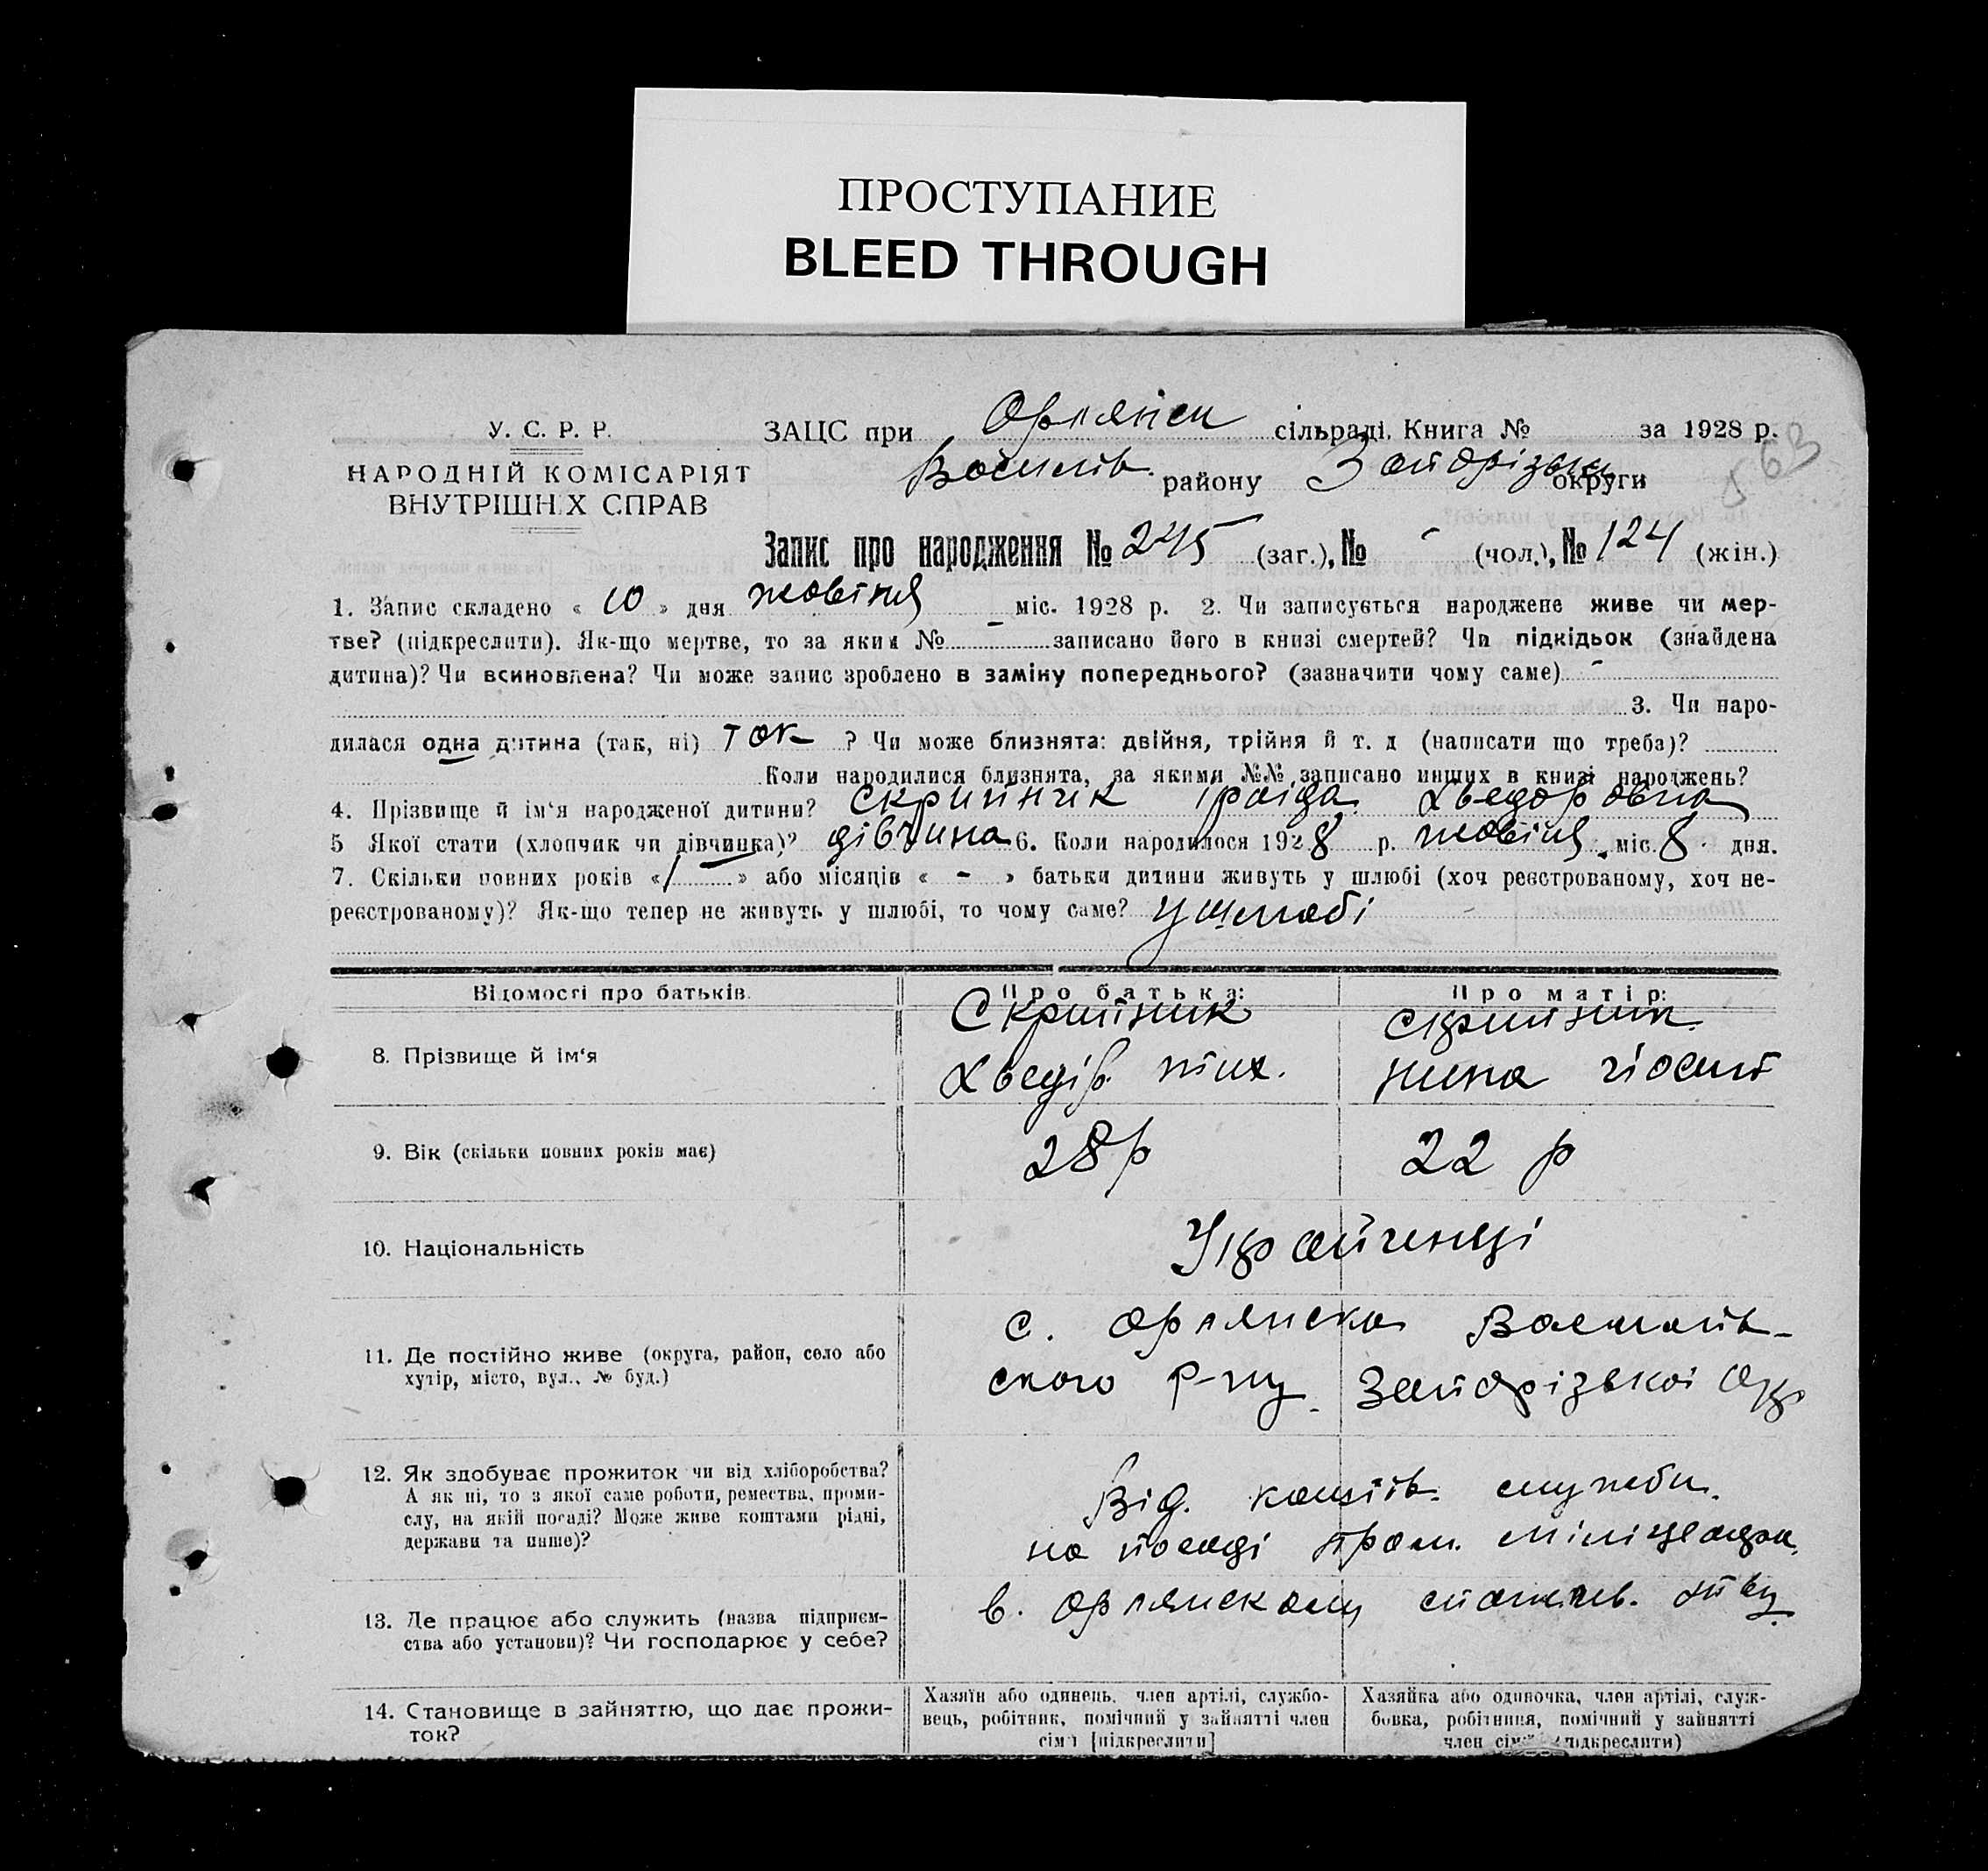 ПРОСТУПАНИЕ
BLEED THROUGH
У. С. Р. Р.
НАРОДНІЙ КОМІСАРІЯТ
ВНУТРІШН.Х СПРАВ
ЗАЦС при Орлянськ сільраді. Книга № за 1928 р.
Василів. району Запорізьк округи
563
Запис про народження № 245 (заг.), № - (чол.), № 124 (жін.)
1. Запис складено « 10 » дня жовтня міс. 1928 р. 2. Чи записується народжене живе чи мер-
тве? (підкреслити). Як-що мертве, то за яким № - записано його в книзі смертей? Чи підкідьок (знайдена
дитина)? Чи всиновлена? Чи може запис зроблено в заміну попереднього? (зазначити чому саме) -
3. Чи наро-
дилася одна дитина (так, ні) так ? Чи може близнята: двійня, трійня й т. д (написати що треба)?
Коли народилися близнята, за якими №№ записано инших в книзі народжень?
4. Прізвище й ім'я народженої дитини? Скрипник Іраіда Хведоровна
5 Якої стати (хлопчик чи дівчинка)? дівчина 6. Коли народилося 1928 р. жовтня міс. 8 дня.
7. Скільки повних років « 1 » або місяців « - » батьки дитини живуть у шлюбі (хоч реєстрованому, хоч не-
реєстрованому)? Як-що тепер не живуть у шлюбі, то чому саме? у шлюбі
Відомості про батьків. Про батька: Про матір:
8. Прізвище й ім'я Скрипник Хведір тих. Скрипник нина йосип
9. Вік (скільки повних років має) 28 р 22 р
10. Національність Українці
11. Де постійно живе (округа, район, село або
хутір, місто, вул., № буд.)
с. Орлянска Василів-
ского р-ну Запорізької окр
12. Як здобуває прожиток чи від хліборобства?
А як ні, то з якої саме роботи, ремества, проми-
слу, на якій посаді? Може живе коштами рідні,
держави та инше)?
Від. коштів. служби.
на посаді пром. міліціонера.
13. Де працює або служить (назва підприєм-
ства або установи)? Чи господарює у себе?
в. Орлянскому спожив. т-ву
14. Становище в зайняттю, що дає прожи-
ток?
Хазяїн або одинець, член артілі, службо-
вець, робітник, помічний у зайнятті член
сім'ї [підкреслити]
Хазяйка або одиночка, член артілі, служ-
бовка, робітниця, помічний у зайнятті
член сім'ї (підкреслити)